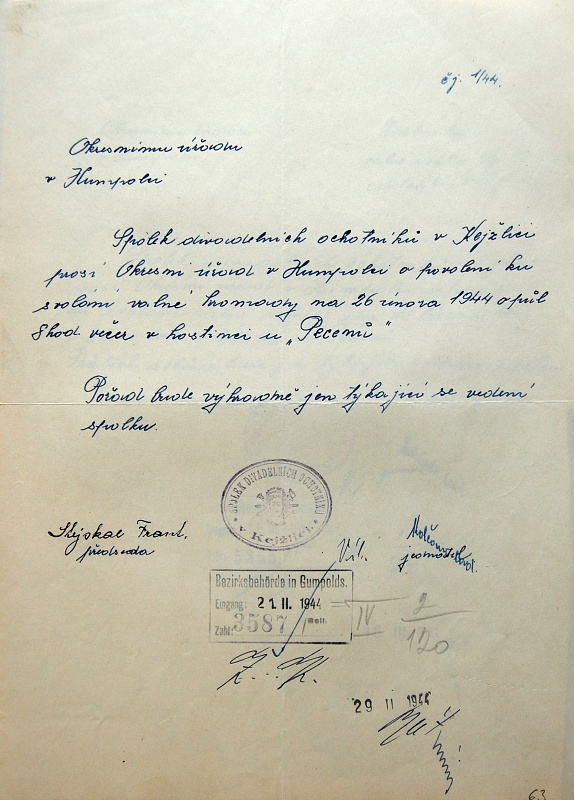 čj. 1/44.
Okresnímu úřadu
v Humpolci
Spolek divadelních ochotníků v Kejžlici
prosí Okresní úřad v Humpolci o povolení ku
svolání valné hromady na 26 února 1944 o půl
8 hod večer v hostinci u „Pecenů"
Pořad bude výhradně jen týkající se vedení
spolku.
SPOLEK DIVADELNÍCH OCHOTNÍKŮ
v Kejžlici.
Stejskal Frant.
předseda
jednatel.
Bezirksbehörde in Gumpolds.
Eingang: 21. II. 1944
Zahl: 3587 / Beil.
IV 2/120
29 II 1944
63